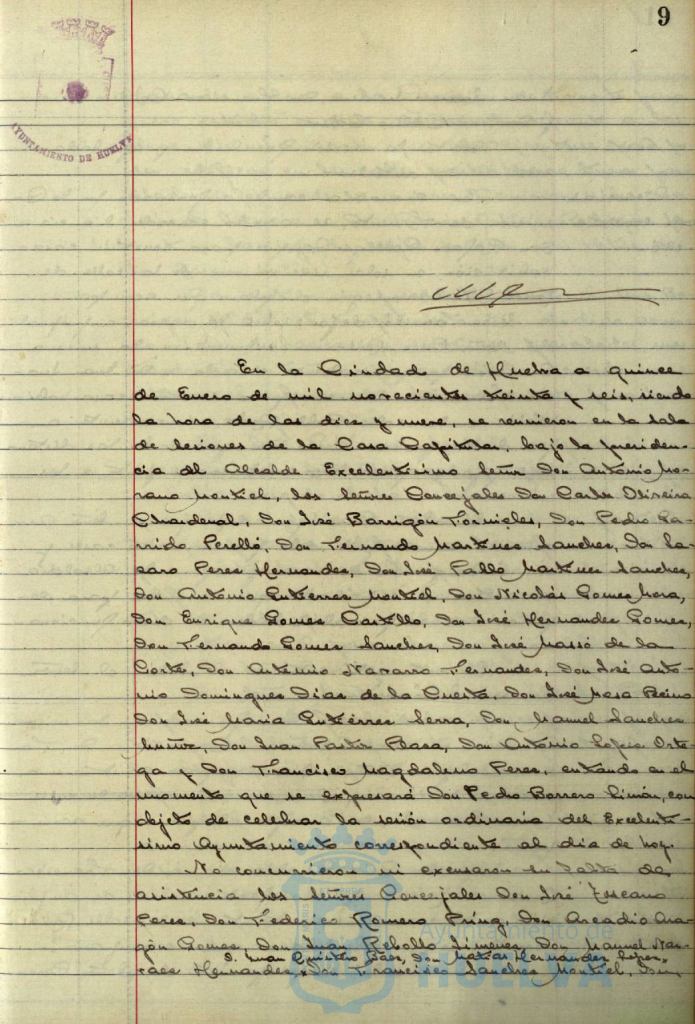 9
AYUNTAMIENTO DE HUELVA
En la Ciudad de Huelva a quince
de Enero de mil novecientos treinta y seis, siendo
la hora de las diez y nueve, se reunieron en la sala
de sesiones de la Casa Capitular, bajo la presiden-
cia del Alcalde Excelentísimo Señor Don Antonio Mo-
rano Montiel, los Señores Concejales Don Carlos Oliveira
Chardenal, Don José Barrigón Fornieles, Don Pedro Ga-
rrido Perelló, Don Fernando Martinez Sanchez, Don La-
zaro Perez Hernandez, Don José Pablo Martinez Sanchez,
Don Antonio Gutierrez Montiel, Don Nicolás Gomez Mora,
Don Enrique Gomez Castillo, Don José Hernandez Gomez,
Don Fernando Gomez Sanchez, Don José Massó de la
Corte, Don Antonio Navarro Fernandez, Don José Anto-
nio Dominguez Diaz de la Cuesta, Don José Mesa
Don José Maria Gutiérrez Serra, Don Manuel Sanchez
Muñoz, Don Juan Pastor Plaza, Don Antonio Lopez Orte-
ga y Don Francisco Magdaleno Perez, entrando en el
momento que se expresará Don Pedro Borrero Limón, con
objeto de celebrar la sesión ordinaria del Excelentí-
simo Ayuntamiento correspondiente al dia de hoy.
No concurrieron ni excusaron su falta de
asistencia los Señores Concejales Don José Toscano
Perez, Don Federico Romero Don Arcadio Ara-
gón Gomez, Don Juan Rebollo Jimenez, Don Manuel
D. Juan Quintero Báez, Don Matias Hernandez Lopez,
Hernandez, Don Francisco Sanchez Montiel,
Ayuntamiento de
HUELVA